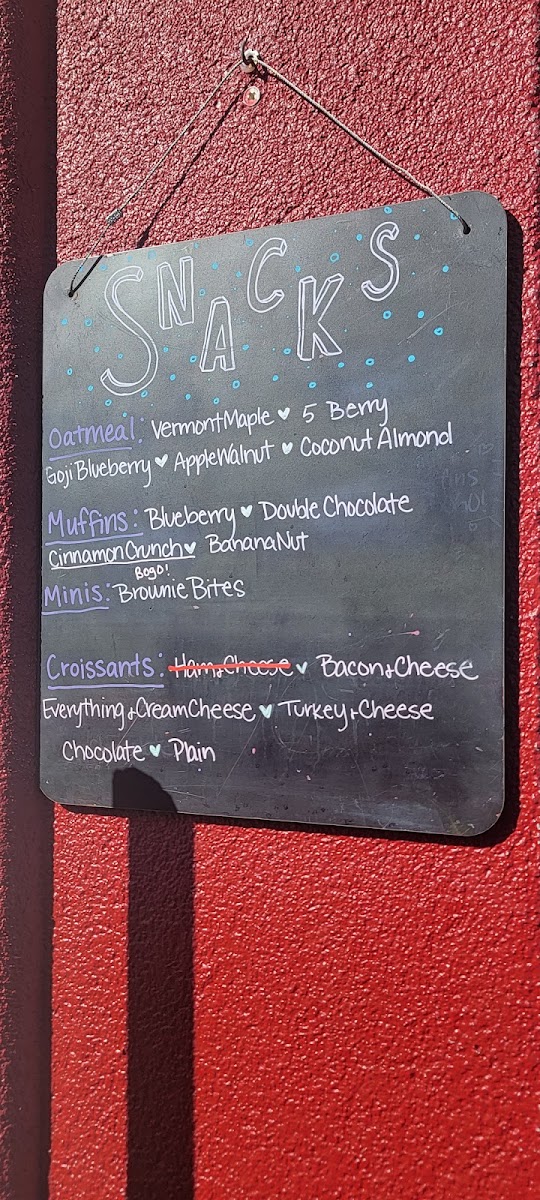 SNACKS
Oatmeal: Vermont Maple ♥ 5 Berry
Goji Blueberry ♥ Apple Walnut ♥ Coconut Almond
Muffins: Blueberry ♥ Double Chocolate
Cinnamon Crunch ♥ Banana Nut
Bogo!
Minis: Brownie Bites
Croissants: Ham & Cheese ♥ Bacon & Cheese
Everything & Cream Cheese ♥ Turkey & Cheese
Chocolate ♥ Plain